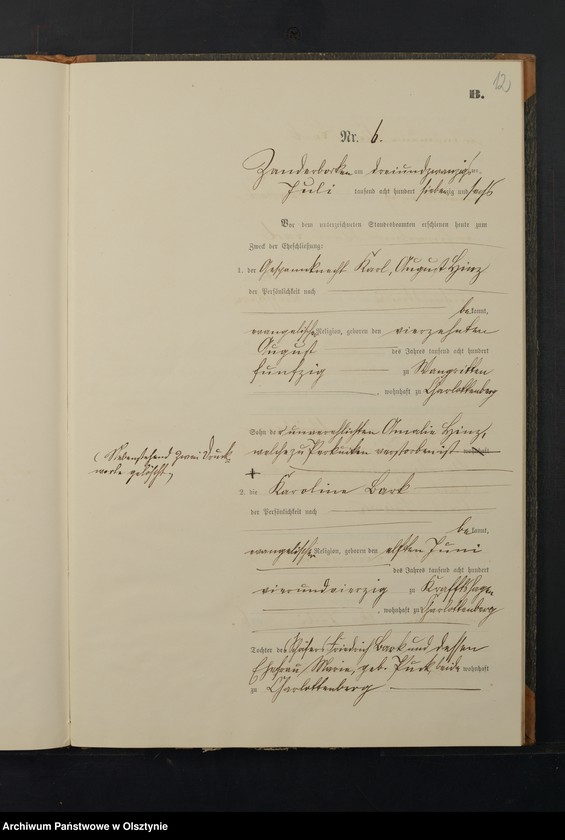 12
B.
Nr. 6.
Zanderborken am dreiundzwanzigsten
Juli tausend acht hundert siebenzig und sechs
Vor dem unterzeichneten Standesbeamten erschienen heute zum
Zweck der Eheschließung:
1. der Gespannknecht Karl, August Hinz
der Persönlichkeit nach
bekannt,
evangelischer Religion, geboren den vierzehnten
August des Jahres tausend acht hundert
funfzig zu Wangritten
, wohnhaft zu Charlottenberg
Sohn der unverehlichten Amalie Hinz,
welche zu Perkuiken verstorben ist wohnhaft
(Nebenstehend zwei Druck-
worte gelöscht)
+
2. die Karoline Bark
der Persönlichkeit nach
bekannt,
evangelischer Religion, geboren den elften Juni
des Jahres tausend acht hundert
vierundvierzig zu Kraftshagen
, wohnhaft zu Charlottenberg
Tochter des Schäfers Friedrich Bark und dessen
Ehefrau Marie, geb. Puck, beide wohnhaft
zu Charlottenberg
Archiwum Państwowe w Olsztynie